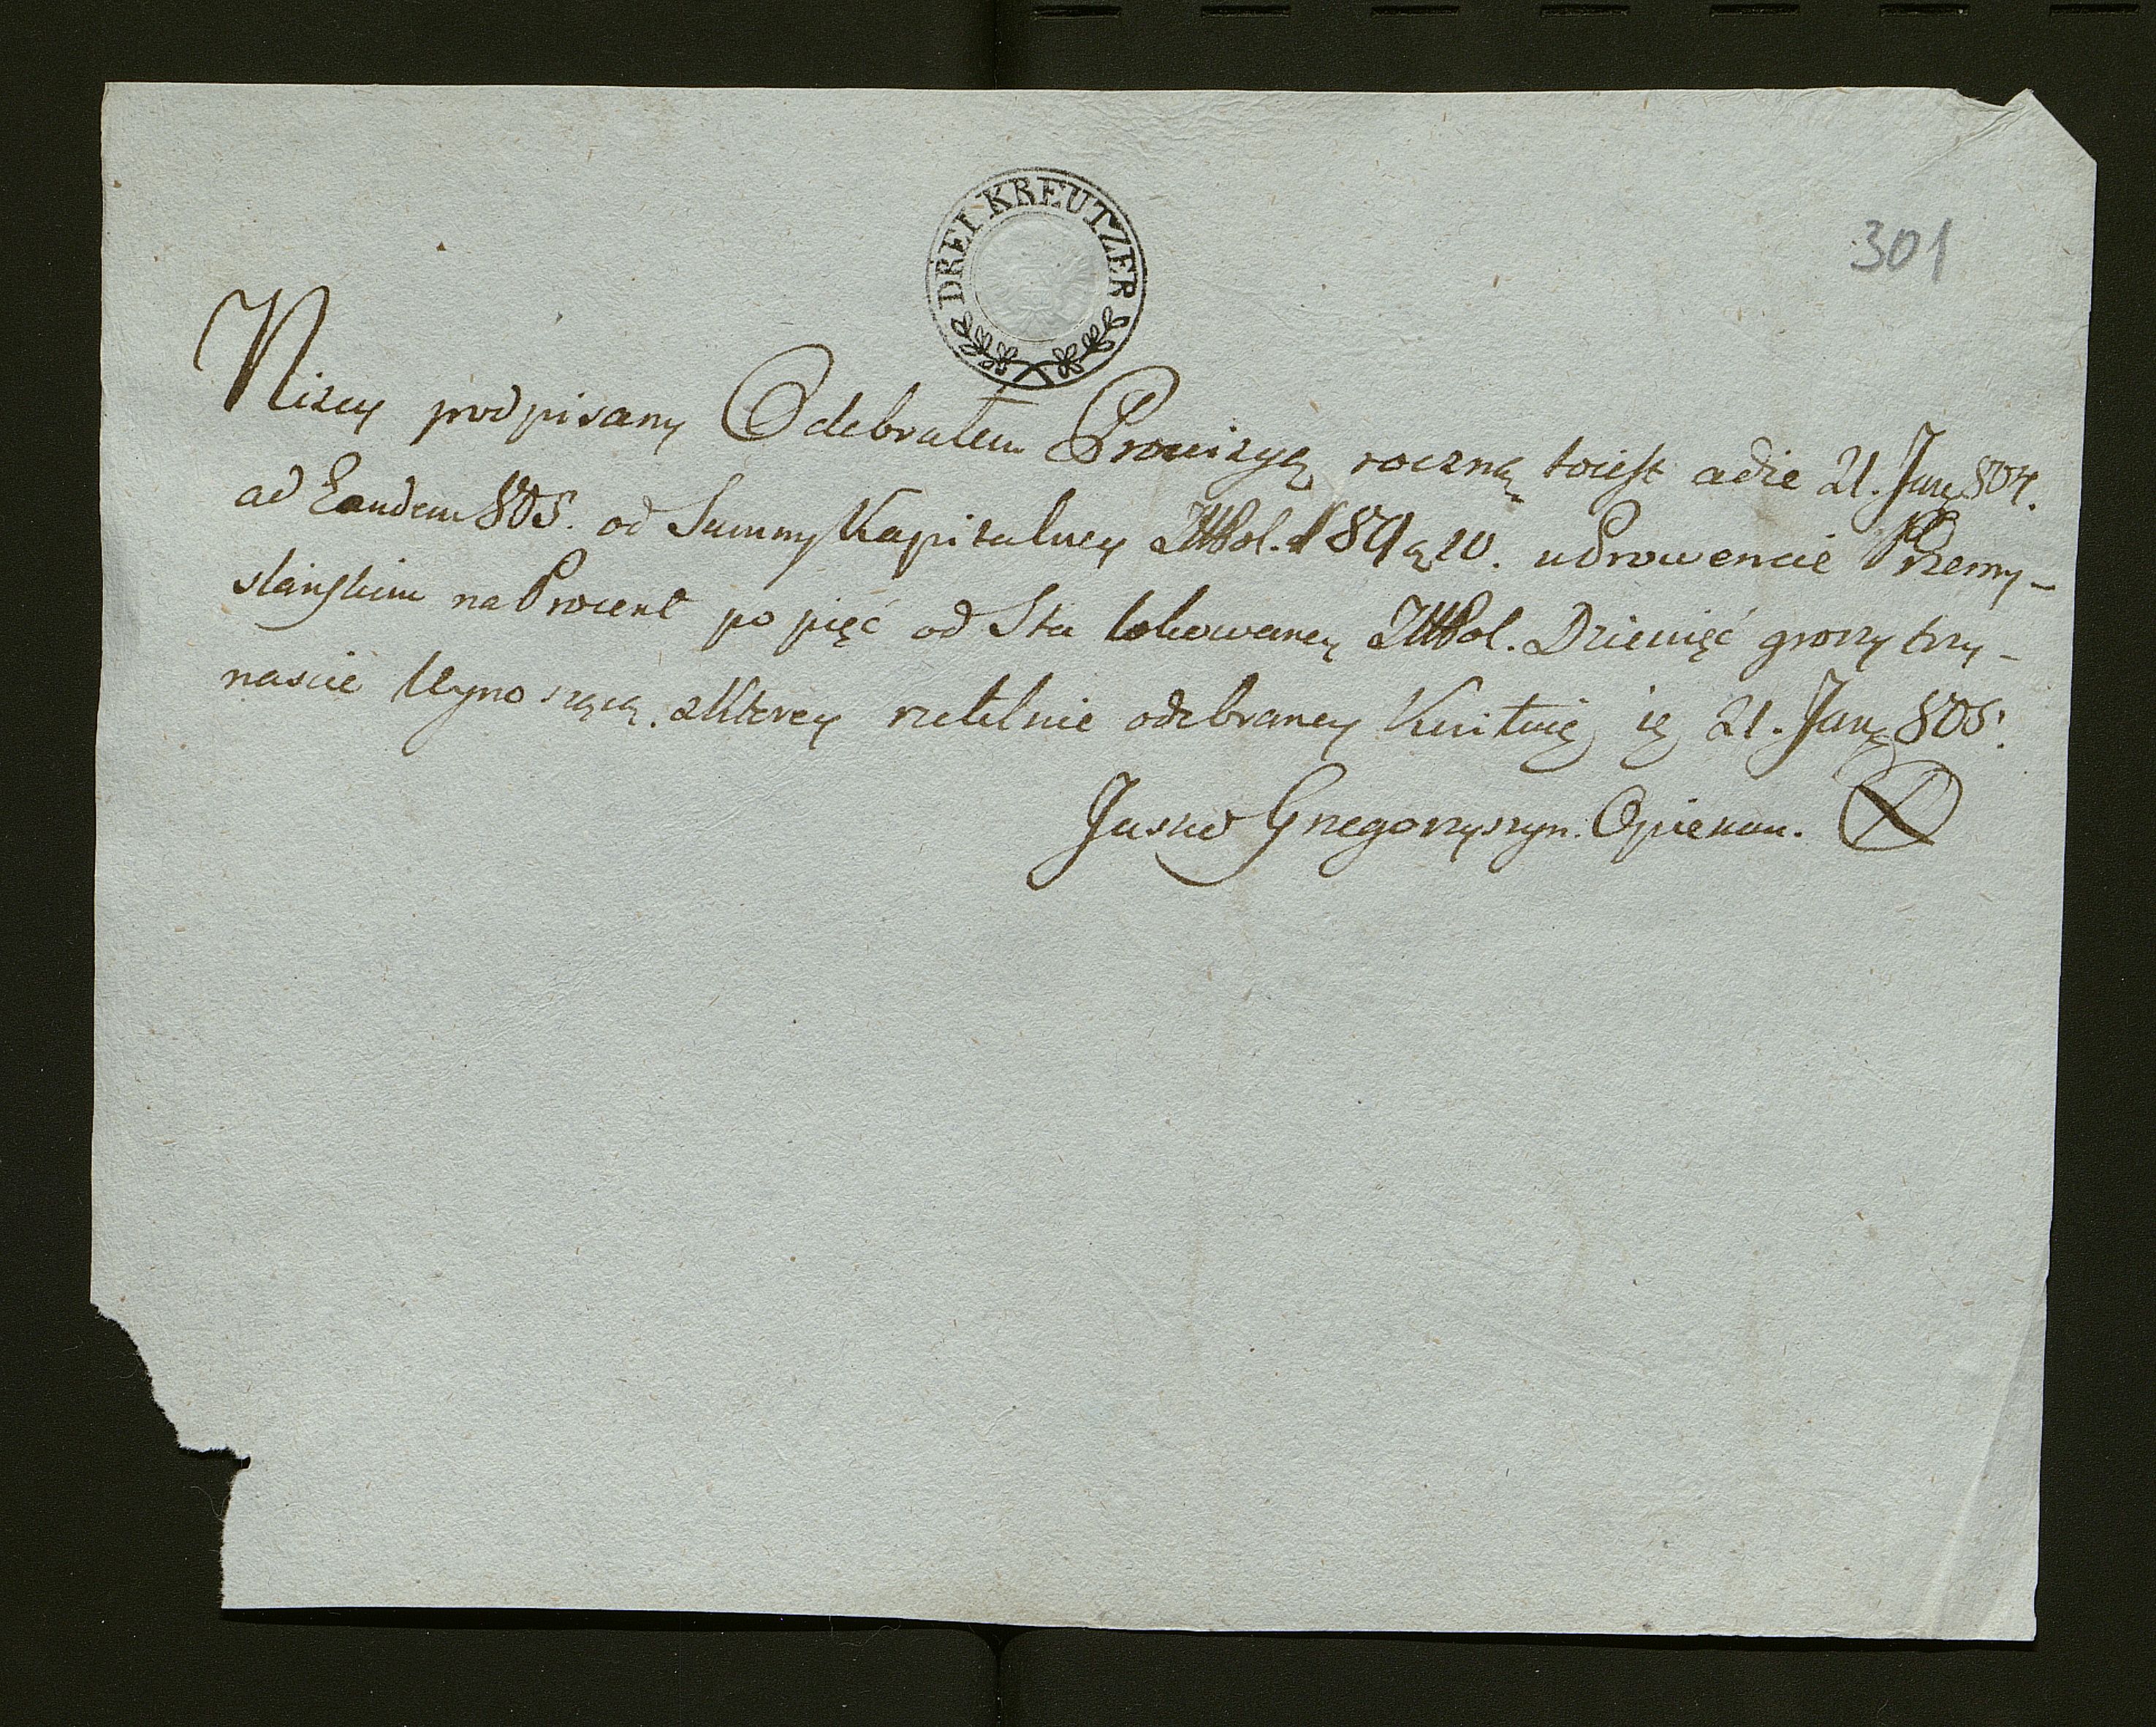 DREI KREUTZER
301
Nizey podpisany Odebrałem Prowizyą roczną toiest a die 21. Jany 804.
ad Eandem 805. od Summy Kapitalney ZłłPol. 189 g 10. w Prowencie Przemy-
slańskim na Procent po pięć od Sta lokowaney ZłłPol. Dziewięć groszy trzy-
nascie Wynoszącą. z Ktorey rzetelnie odebraney Kwituię ię 21. Jany 805.
Jusko Gregorzyszyn. Opiekun.